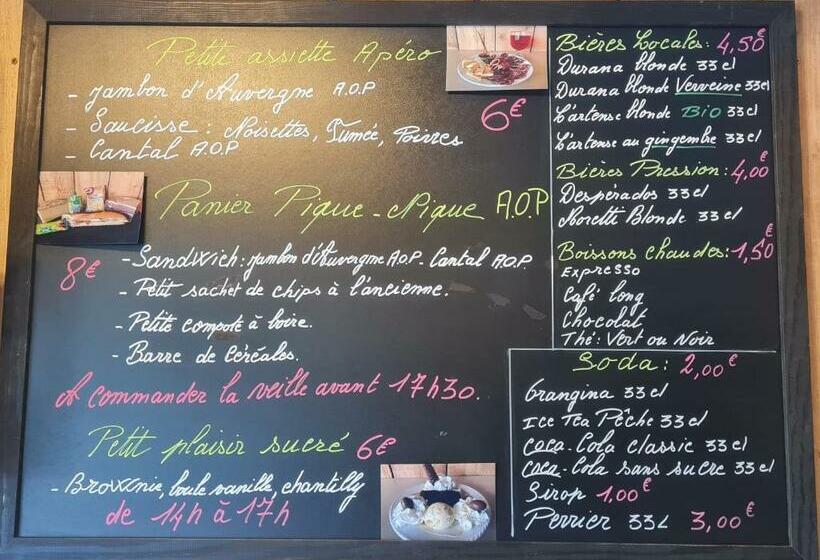 Petite assiette Apéro
- Jambon d'Auvergne A.O.P
6€
- Saucisse : Noisettes, Fumée, Poivres
- Cantal A.O.P
Panier Pique-Nique A.O.P
8€
- Sandwich : Jambon d'Auvergne A.O.P - Cantal A.O.P
- Petit sachet de chips à l'ancienne.
- Petite compote à boire.
- Barre de Céréales.
A commander la veille avant 17h30.
Petit plaisir sucré 6€
- Brownie, boule vanille, chantilly
de 14h à 17h
Bières Locales : 4,50€
Durana blonde 33 cl
Durana blonde Verveine 33 cl
L'artense blonde Bio 33 cl
L'artense au gingembre 33 cl
Bières Pression : 4,00€
Despérados 33 cl
Norette Blonde 33 cl
Boissons chaudes : 1,50€
Expresso
Café long
Chocolat
Thé : Vert ou Noir
Soda : 2,00€
Orangina 33 cl
Ice Tea Pêche 33 cl
Coca-Cola classic 33 cl
Coca-Cola sans sucre 33 cl
Sirop 1,00€
Perrier 33L 3,00€